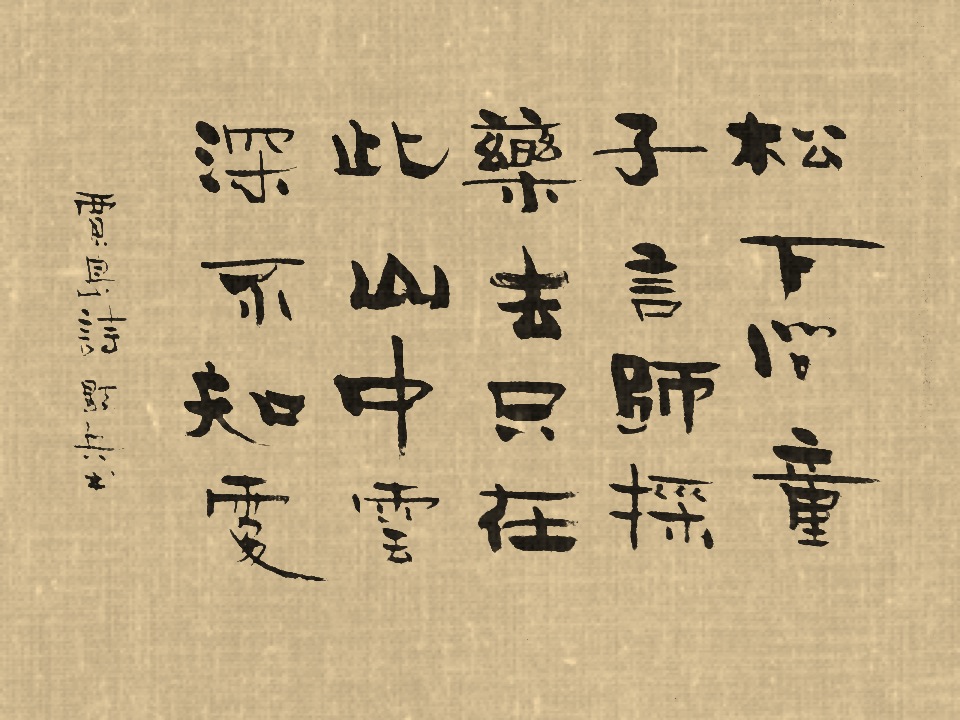 松下問童
子言師採
藥去只在
此山中雲
深不知處
賈島詩